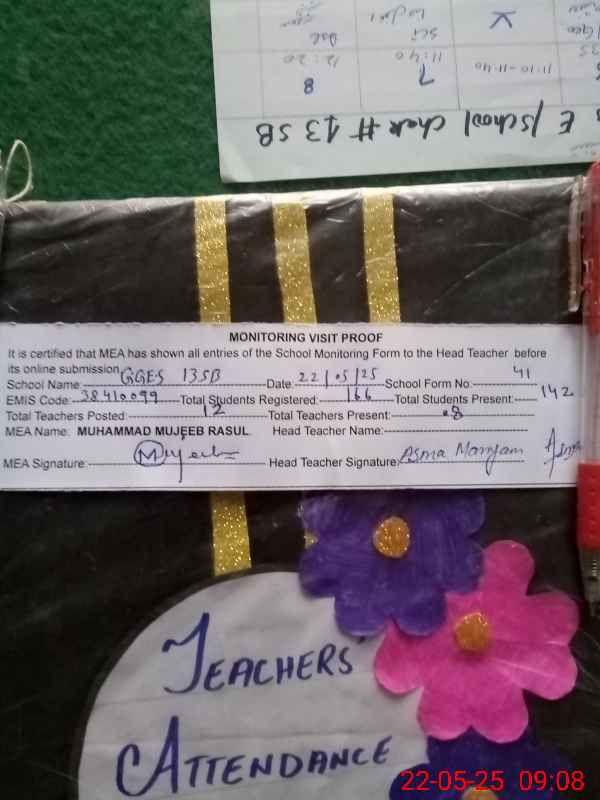 E/school chak # 13 SB
8
7
12:20
11:40
11:10-11:40
MONITORING VISIT PROOF
It is certified that MEA has shown all entries of the School Monitoring Form to the Head Teacher before
its online submission.
School Name: GGES 13SB Date: 22/05/25 School Form No.: 41
EMIS Code: 38410099 Total Students Registered: 166 Total Students Present: 142
Total Teachers Posted: 12 Total Teachers Present: 8
MEA Name: MUHAMMAD MUJEEB RASUL Head Teacher Name:
MEA Signature: Mujeeb Head Teacher Signature: Asma Maryam
TEACHERS'
ATTENDANCE
22-05-25 09:08